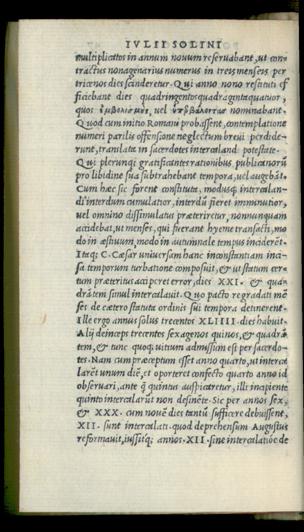 IVLII SOLINI
multiplicatos in annum nouum reseruabant, ut con-
tractus nonagenarius numerus in treis menseis per
tricenos dies scinderetur. Qui anno nono restituti ef
ficiebant dies quadringentos quadragintaquatuor,
quos ἐμβολισμὸς, uel ὑπερβάλλοντας nominabant.
Quod cum initio Romani probassent, contemplatione
numeri parilis offensione neglectum breui perdide-
runt, translata in sacerdotes intercalandi potestate.
Qui plerunq; gratificantes rationibus publicanorũ
pro libidine sua subtrahebant tempora, uel augebãt.
Cum hæc sic forent constituta, modusq; intercalan-
di interdum cumulatior, interdũ fieret imminutior,
uel omnino dissimulatus præteriretur, nonnunquam
accidebat, ut menses, qui fuerant hyeme transacti, mo-
do in æstiuum, modo in autumnale tempus inciderẽt.
Itaq; C. Cæsar uniuersam hanc inconstantiam inci-
sa temporum turbatione composuit, & ut statum cer-
tum præteritus acciperet error, dies XXI. & qua-
drãtem simul intercalauit. Quo pacto regradati mẽ-
ses de cætero statuta ordinis sui tempora detinerent.
Ille ergo annus solus trecentos XLIIII dies habuit.
Alij deinceps trecentos sexagenos quinos, & quadrã
tem, & tunc quoq; uitium admissum est per sacerdo-
tes. Nam cum præceptum esset anno quarto, ut interca
larẽt unum diẽ, et oporteret confecto quarto anno id
obseruari, ante q̃ quintus auspicaretur, illi incipiente
quinto intercalarũt non desinẽte. Sic per annos sex,
& XXX. cum nouẽ dies tantũ sufficere debuissent,
XII. sunt intercalati. quod deprehensum Augustus
reformauit, iussitq; annos. XII. sine intercalatiõe de